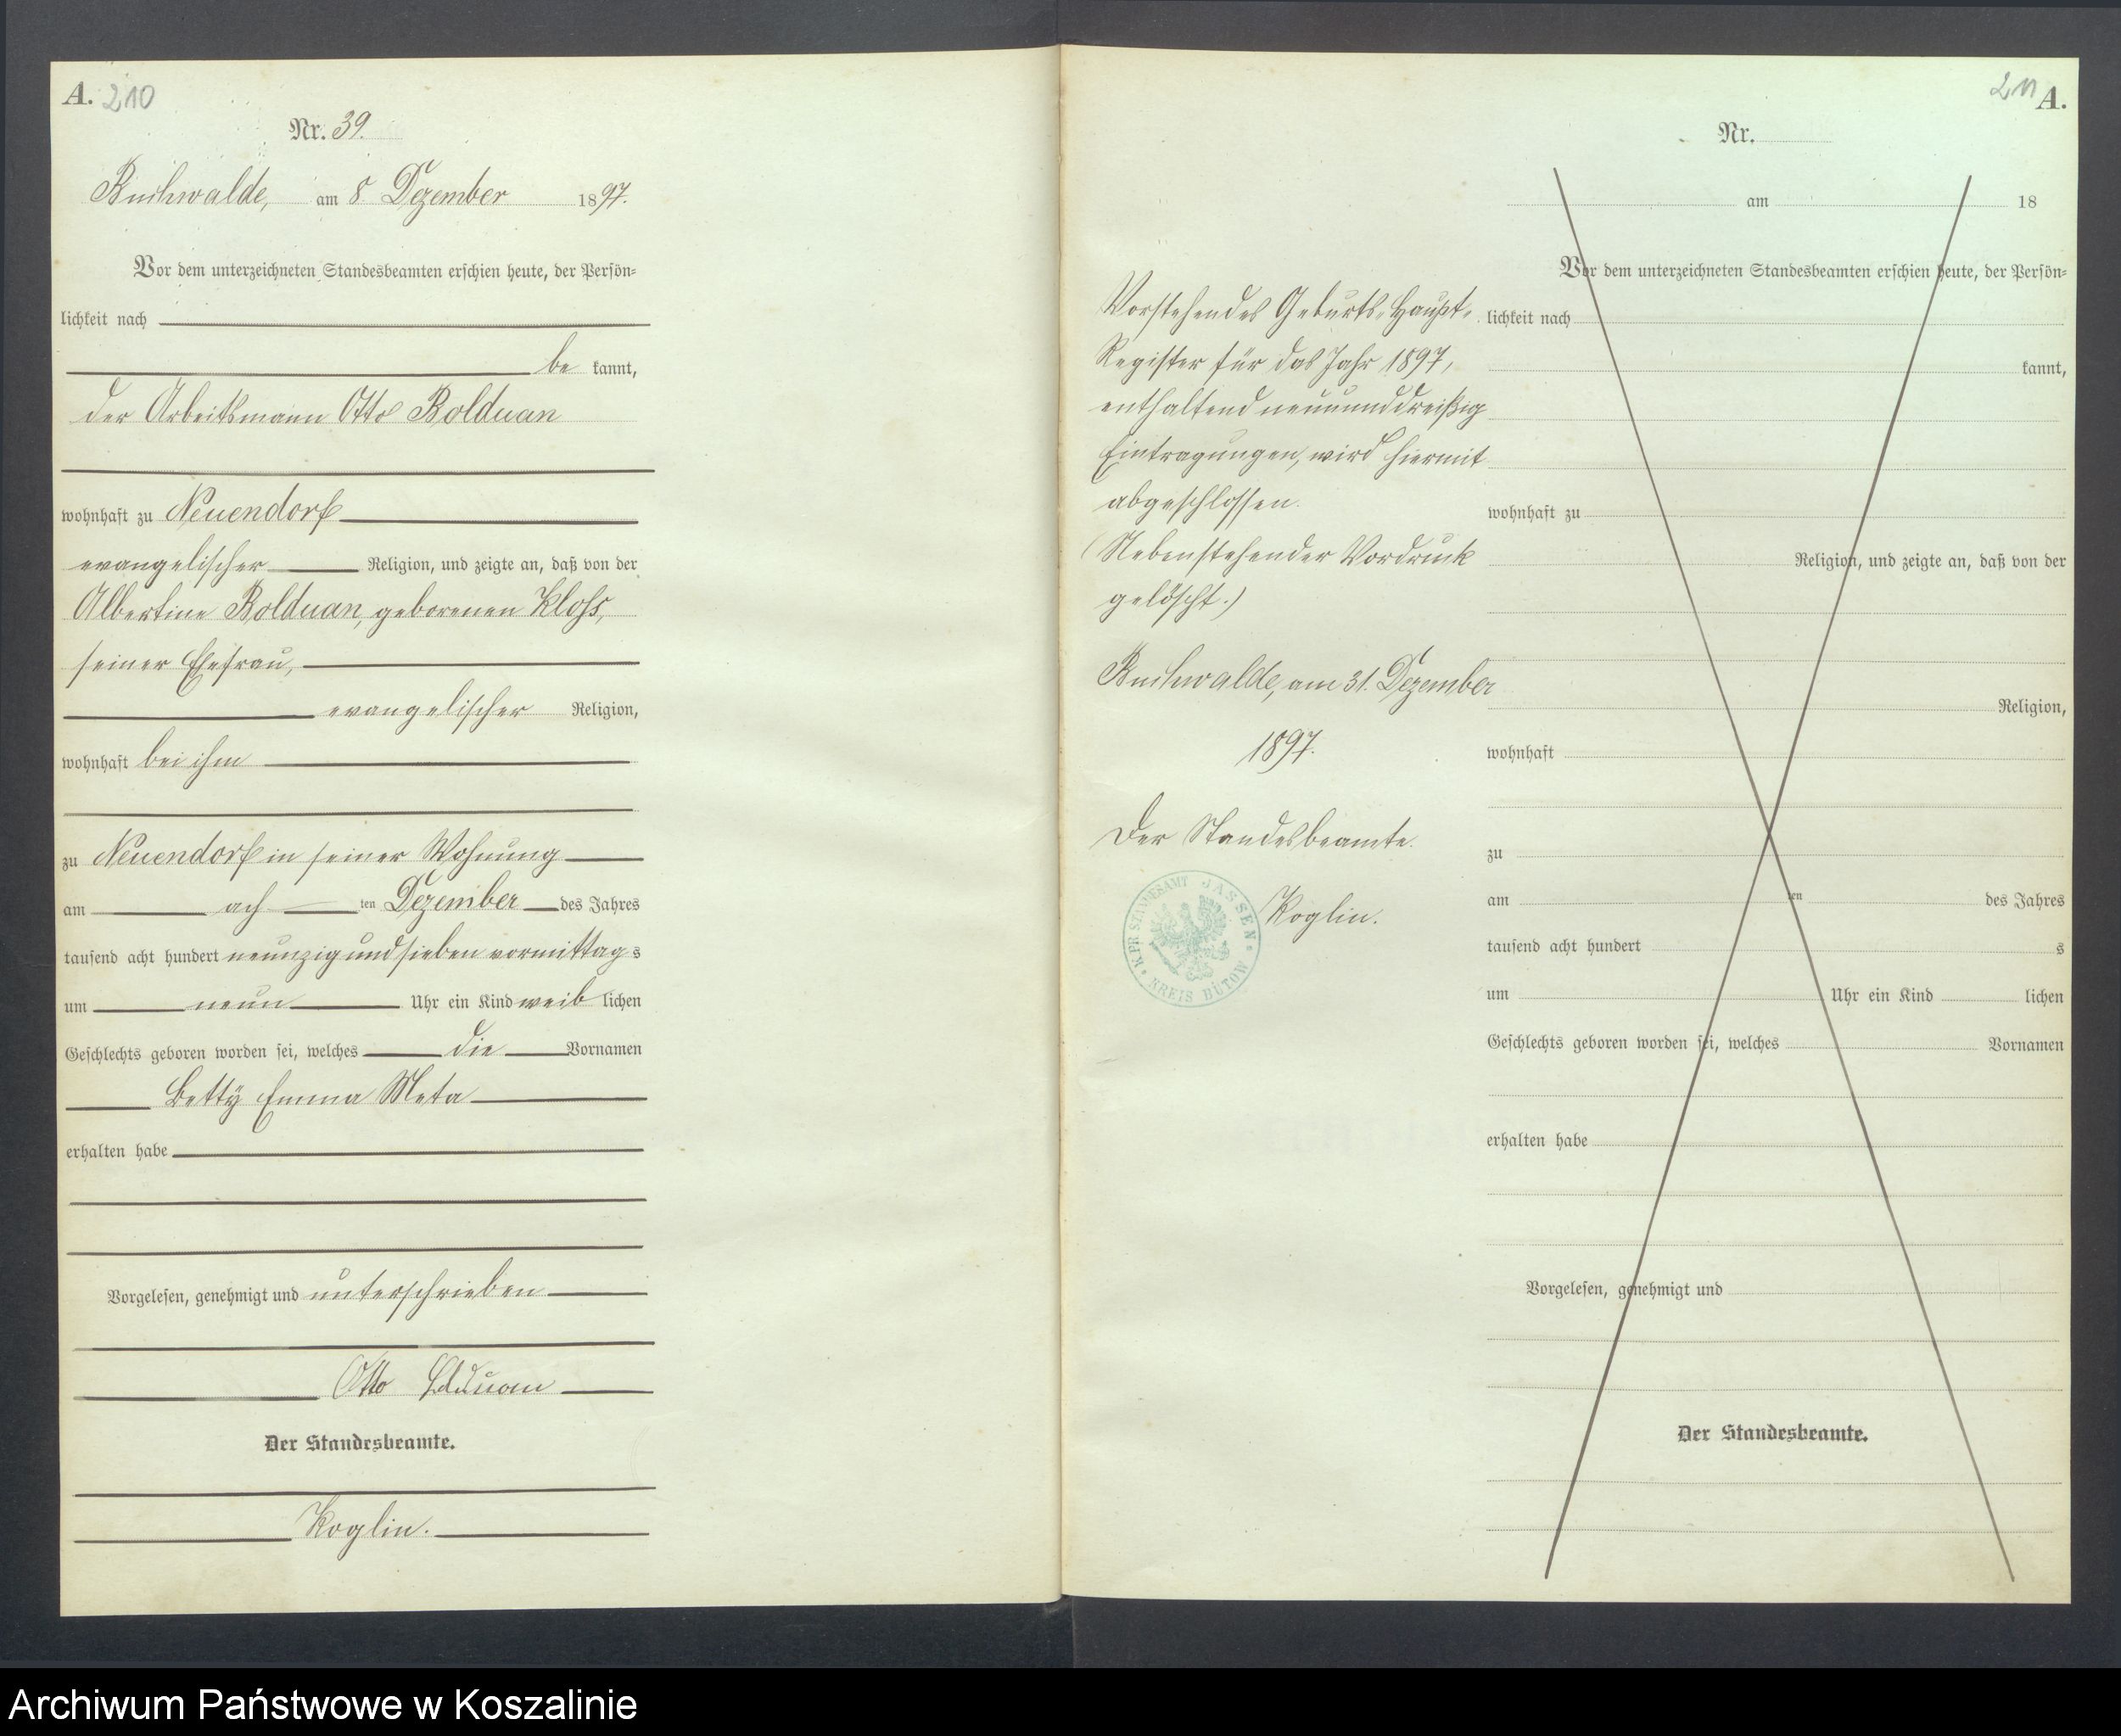 A. 210
Nr. 39.
Buchwalde, am 8 Dezember 1897.
Vor dem unterzeichneten Standesbeamten erschien heute, der Persön-
lichkeit nach
be kannt,
der Arbeitsmann Otto Bolduan
wohnhaft zu Neuendorf
evangelischer Religion, und zeigte an, daß von der
Albertine Bolduan, geborenen Kloss,
seiner Ehefrau,
evangelischer Religion,
wohnhaft bei ihm
zu Neuendorf in seiner Wohnung
am ach ten Dezember des Jahres
tausend acht hundert neunzig und sieben vormittag s
um neun Uhr ein Kind weib lichen
Geschlechts geboren worden sei, welches die Vornamen
Betty Emma Meta
erhalten habe
Vorgelesen, genehmigt und unterschrieben
Otto Bolduan
Der Standesbeamte.
Koglin.
211 A.
Nr.
am 18
Vor dem unterzeichneten Standesbeamten erschien heute, der Persön-
lichkeit nach
kannt,
wohnhaft zu
Religion, und zeigte an, daß von der
Religion,
wohnhaft
zu
am ten des Jahres
tausend acht hundert s
um Uhr ein Kind lichen
Geschlechts geboren worden sei, welches Vornamen
erhalten habe
Vorgelesen, genehmigt und
Der Standesbeamte.
Vorstehendes Geburts-Haupt-
Register für das Jahr 1897,
enthaltend neununddreißig
Eintragungen, wird hiermit
abgeschlossen.
(Nebenstehender Vordruck
gelöscht.)
Buchwalde, am 31. Dezember
1897.
Der Standesbeamte.
Koglin.
K. PR. STANDESAMT JASSEN
KREIS BÜTOW
Archiwum Państwowe w Koszalinie